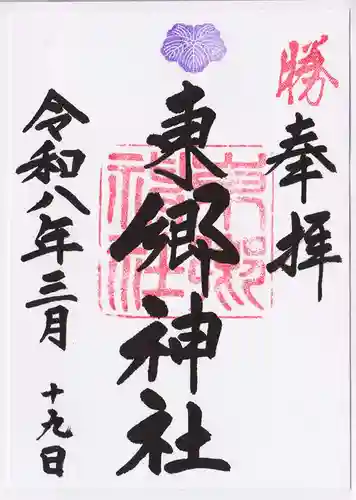 勝
奉拝
東郷神社
東郷神社
令和八年三月
十九日